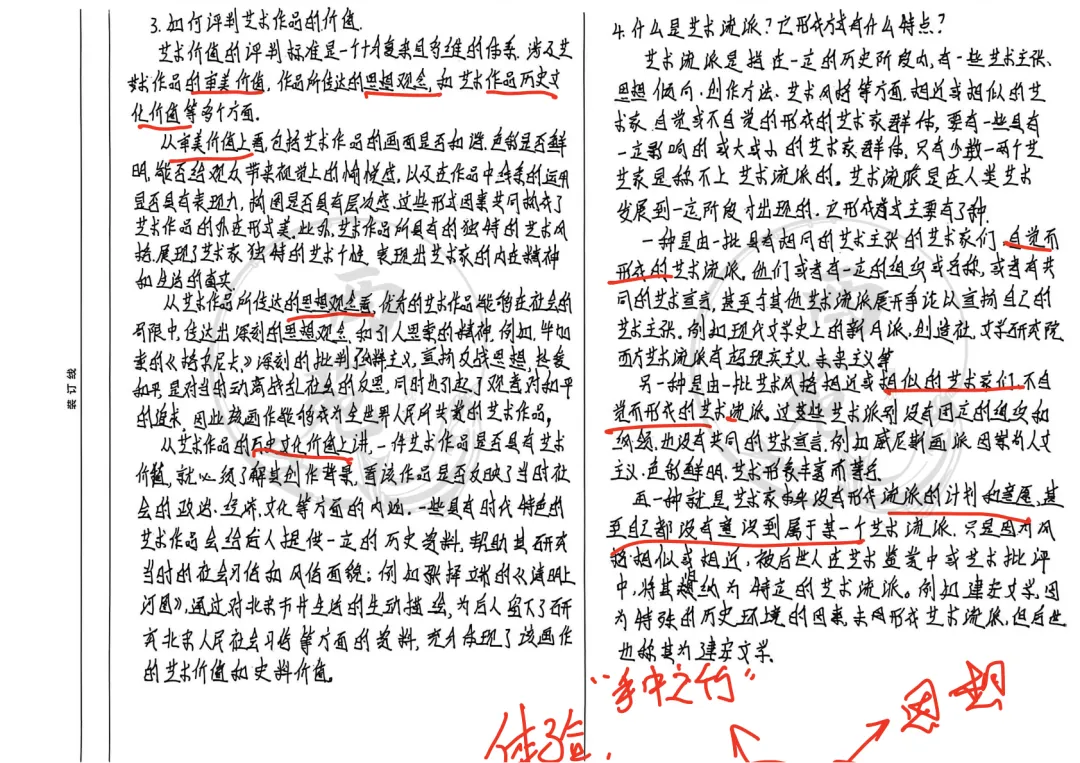 装订线
3. 如何评判艺术作品的价值.
艺术价值的评判标准是一个十分复杂且多维的体系.涉及艺
术作品的审美价值,作品所传达的思想观念,和艺术作品历史文
化价值等多个方面.
从审美价值上看,包括艺术作品的画面是否和谐.色彩是否鲜
明,能否给观众带来视觉上的愉悦感,以及在作品中线条的运用
是否具有表现力,构图是否具有层次感.这些形式因素共同构成了
艺术作品的外在形式美.此外.艺术作品所具有的独特的艺术风
格,展现了艺术家独特的艺术个性,表现出艺术家的内在精神
和生活的真实.
从艺术作品所传达的思想观念看,优秀的艺术作品能够在社会的
有限中,传达出深刻的思想观念,和引人思索的精神,例如,毕加
索的《格尔尼卡》深刻的批判了纳粹主义,宣扬反战思想,热爱
和平,是对当时动荡战乱社会的反思,同时也引起了观者对和平
的追求,因此该画作能够成为全世界人民所共赏的艺术作品。
从艺术作品的历史文化价值上讲,一件艺术作品是否具有艺术
价值,就必须了解其创作背景,看该作品是否反映了当时社
会的政治、经济、文化等方面的内涵.一些具有时代特色的
艺术作品会给后人提供一定的历史资料,帮助其研究
当时的社会习俗和风俗面貌;例如张择端的《清明上
河图》,通过对北宋市井生活的生动描绘,为后人留下了研
究北宋人民社会习俗等方面的资料,充分体现了该画作
的艺术价值和史料价值.
4.什么是艺术流派?它形成方式有什么特点?
艺术流派是指在一定的历史阶段内,有一些艺术主张、
思想倾向.创作方法.艺术风格等方面.相近或相似的艺
术家.自觉或不自觉的形成的艺术家群体,要有一些具有
一定影响的或大或小的艺术家群体,只有少数一两个艺
艺家是称不上艺术流派的。艺术流派是在人类艺术
发展到一定阶段才出现的.它形成方式主要有3种.
一种是由一批具有相同的艺术主张的艺术家们,自觉而
形成的艺术流派,他们或者有一定的组织或名称,或者有共
同的艺术宣言,甚至与其他艺术流派展开争论以宣扬自己的
艺术主张。例如现代文学史上的新月派.创造社.文学研究院
西方艺术流派有超现实主义.未来主义等
另一种是由一批艺术风格相近或相似的艺术家们,不自
觉而形成的艺术流派.这些艺术流派则没有固定的组织和
纲领,也没有共同的艺术宣言,例如威尼斯画派因崇尚人文
主义.色彩鲜明.艺术形象丰富而著名
再一种就是艺术家本来没有形成流派的计划和意愿,甚
至自己都没有意识到属于某一个艺术流派.只是因为风
格相似或相近,被后世人在艺术鉴赏中或艺术批评
中,将其归纳为特定的艺术流派。例如建安文学,因
为特殊的历史环境的因素,未曾形成艺术流派,但后世
也称其为建安文学.
"手中之竹"
体验.
思想